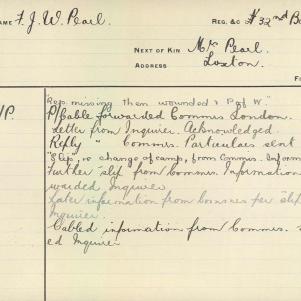 NAME F. J. W. Pearl.
REG. &C # 32nd B
NEXT OF KIN Mr Pearl.
ADDRESS Loxton.
Rep. missing then wounded & P of W."
P/Cable Forwarded Commrs London.
Letter from Inquirer. Acknowledged.
Reply " Commrs. Particulars sent
"Slip, re change of camp, from Commrs. Inform
Further slip from Commrs. Information
warded Inquirer
Later information from Commrs per slip
Inquirer
Cabled information from Commrs.
ed Inquirer